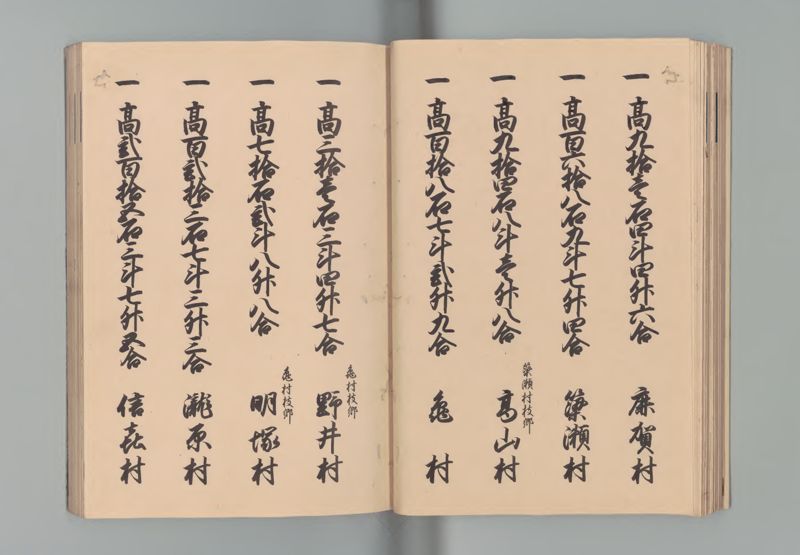 一 髙九拾壱石四斗四升六合 賀村
一 髙百六拾八石九斗七升四合 簗瀬村
一 髙九拾四石八斗壱升八合 簗瀬村枝郷 高山村
一 髙百拾八石七斗弐升九合 亀村
一 髙三拾壱石三斗四升七合 亀村枝郷 野井村
一 髙七拾石弐斗八升八合 亀村枝郷 明塚村
一 髙百弐拾三石七斗三升三合 瀧原村
一 髙弐百拾五石三斗七升五合 信喜村